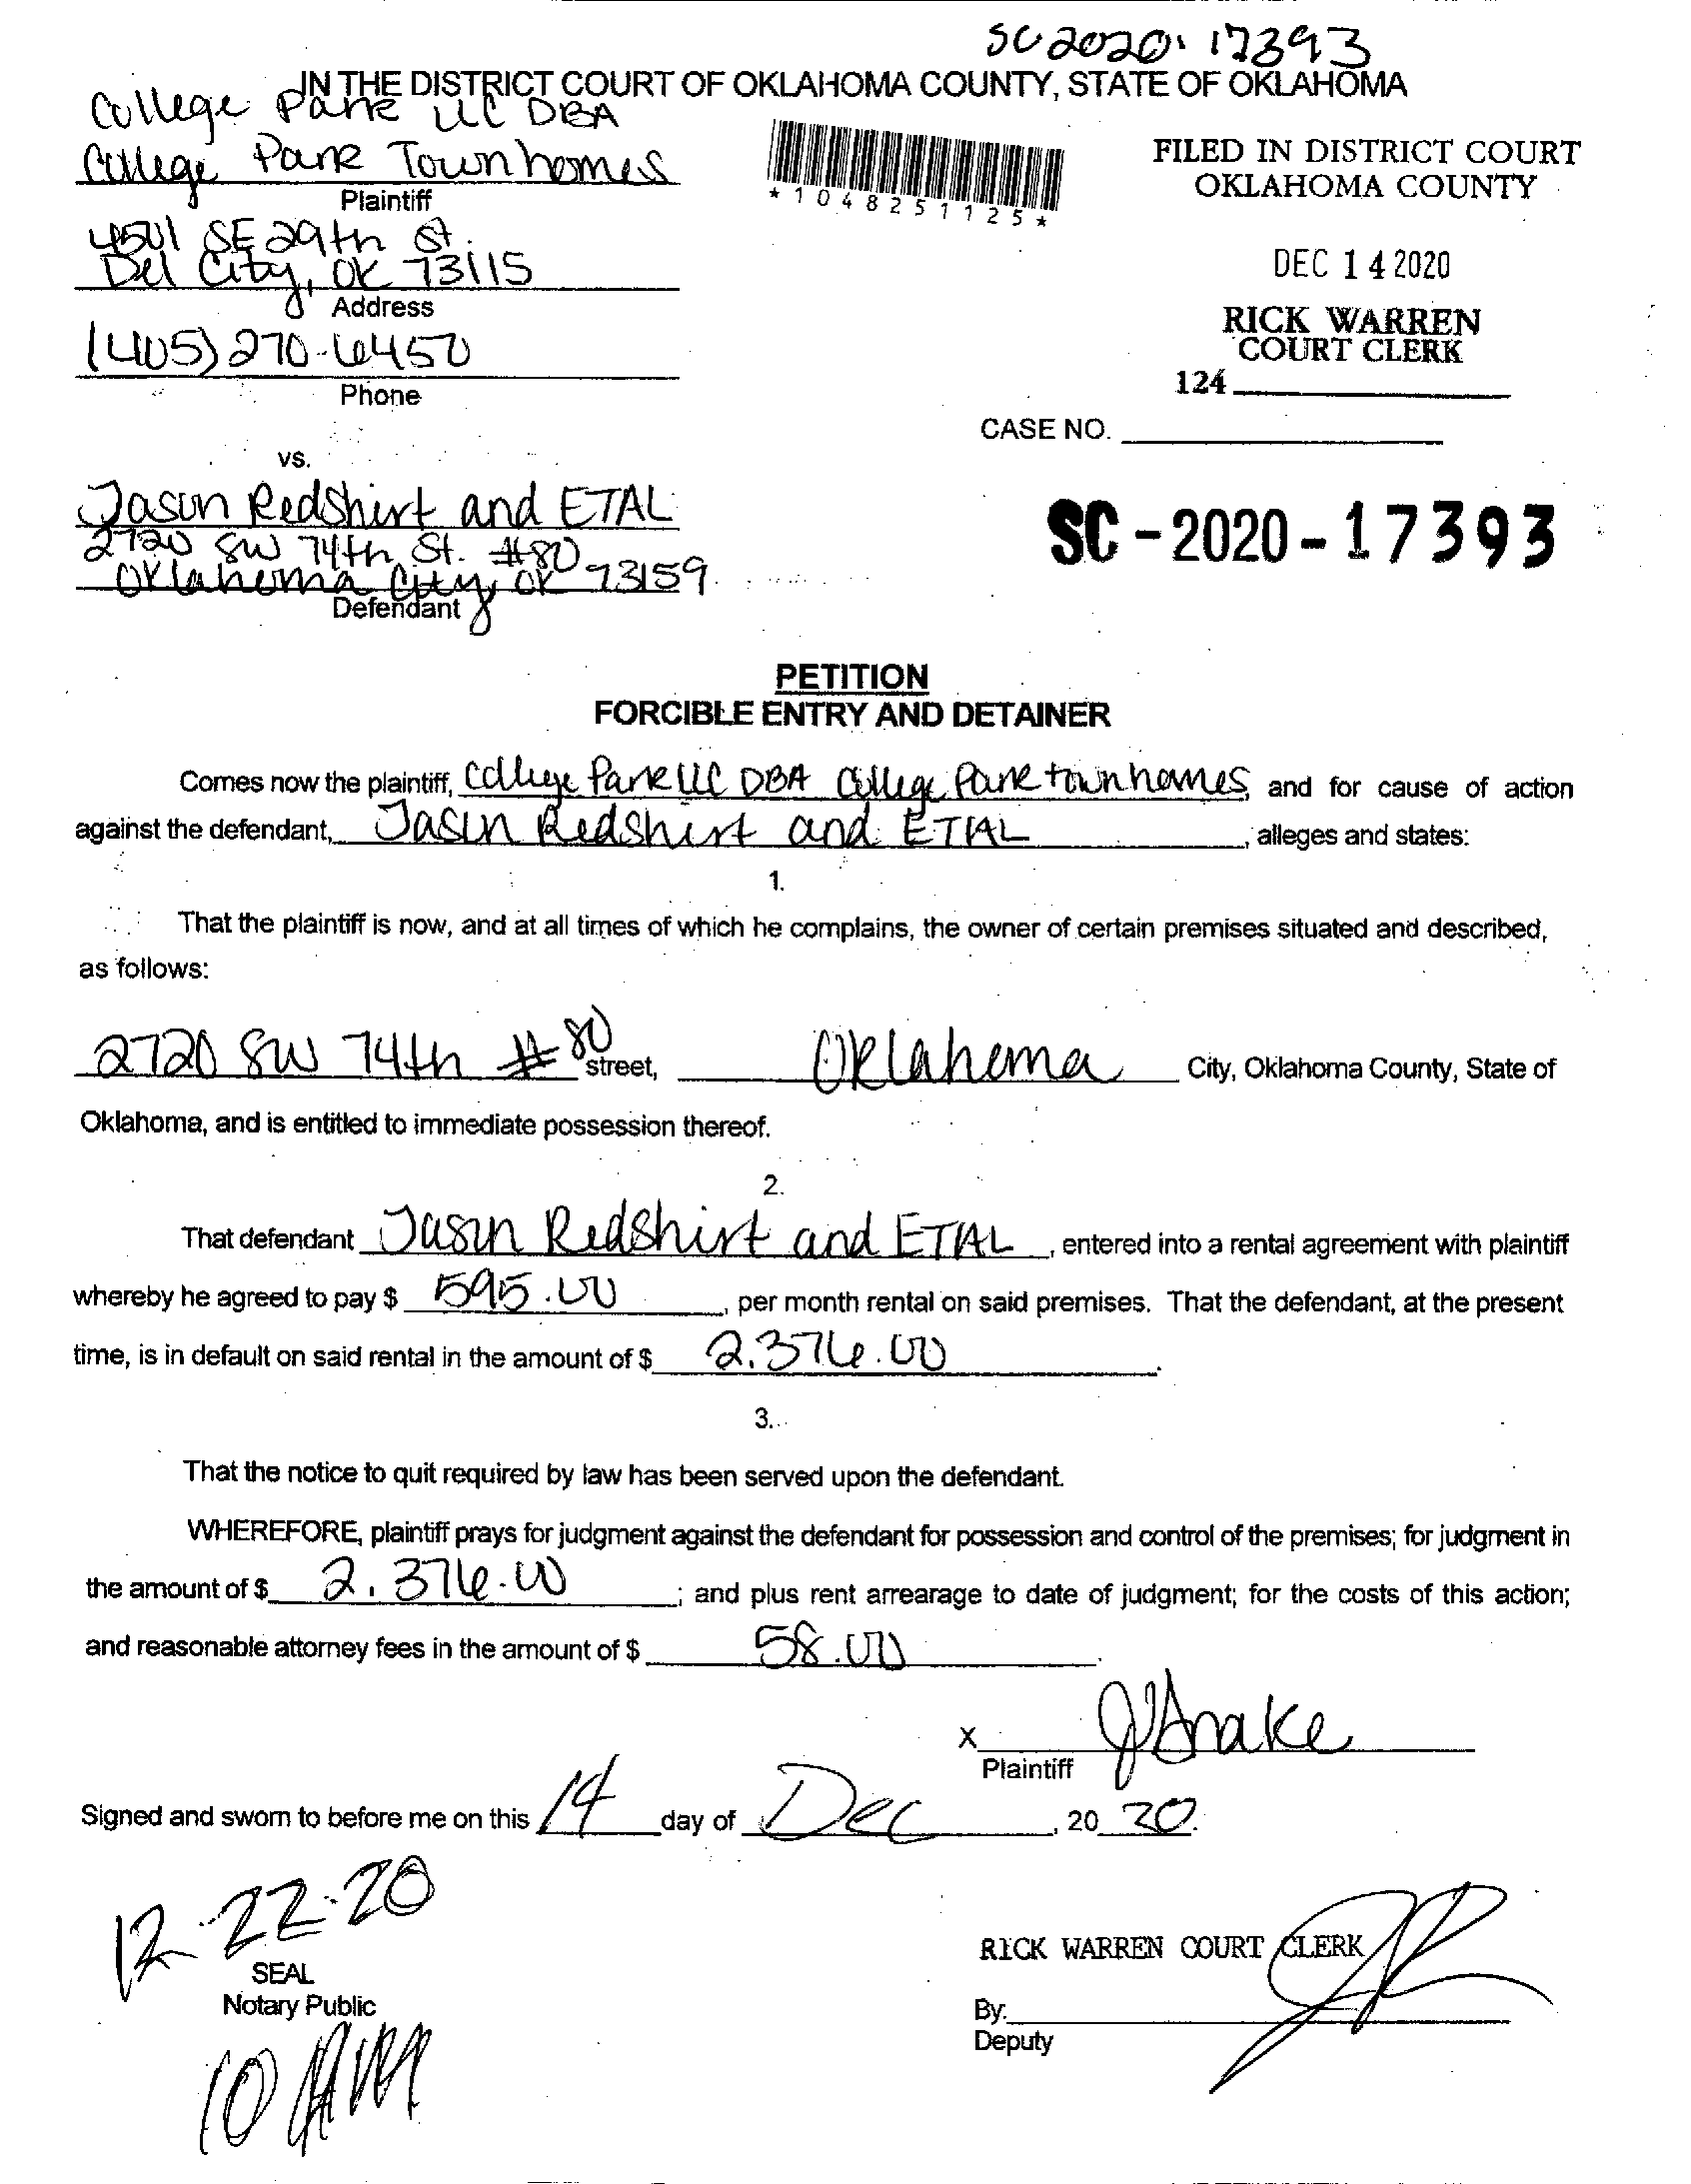 SC 2020-17393
IN THE DISTRICT COURT OF OKLAHOMA COUNTY, STATE OF OKLAHOMA
College Park LLC DBA
College Park Townhomes
Plaintiff
4501 SE 29th St.
Del City, OK 73115
Address
(405) 270-6450
Phone
*1048251125*
FILED IN DISTRICT COURT
OKLAHOMA COUNTY
DEC 14 2020
RICK WARREN
COURT CLERK
124
CASE NO.
vs.
Jason Redshirt and ETAL
2720 SW 74th St. #80
Oklahoma City, OK 73159
Defendant
SC-2020-17393
PETITION
FORCIBLE ENTRY AND DETAINER
Comes now the plaintiff, College Park LLC DBA College Park townhomes, and for cause of action
against the defendant, Jason Redshirt and ETAL, alleges and states:
1.
That the plaintiff is now, and at all times of which he complains, the owner of certain premises situated and described,
as follows:
2720 SW 74th #80 street, Oklahoma City, Oklahoma County, State of
Oklahoma, and is entitled to immediate possession thereof.
2.
That defendant Jason Redshirt and ETAL, entered into a rental agreement with plaintiff
whereby he agreed to pay $ 595.00, per month rental on said premises. That the defendant, at the present
time, is in default on said rental in the amount of $ 2,376.00.
3.
That the notice to quit required by law has been served upon the defendant.
WHEREFORE, plaintiff prays for judgment against the defendant for possession and control of the premises; for judgment in
the amount of $ 2,376.00; and plus rent arrearage to date of judgment; for the costs of this action;
and reasonable attorney fees in the amount of $ 58.00.
X
Plaintiff
Signed and sworn to before me on this 14 day of Dec, 2020.
12-22-20
SEAL
Notary Public
10 AM
RICK WARREN COURT CLERK
By:
Deputy